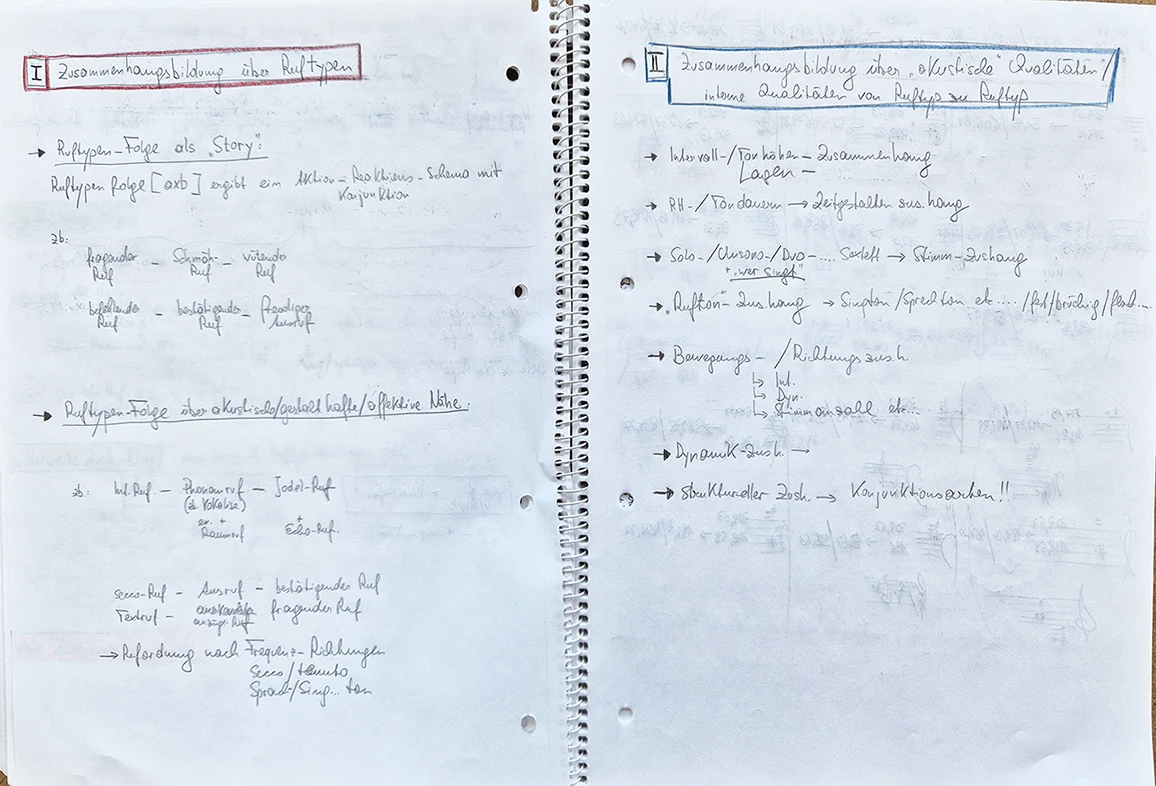 I Zusammenhangsbildung über Ruftypen
→ Ruftypen-Folge als „Story":
Ruftypenfolge [axb] ergibt ein Aktion-Reaktions-Schema mit
Konjunktion
zb:
fragender Ruf – Schmäh-Ruf – wütender Ruf
befehlender Ruf – bestätigender Ruf – freudiger Ausruf
→ Ruftypen-Folge über akustische/gestalthafte/affektive Nähe:
zb: Int.Ruf – Phonemruf – Jodel-Ruf
(2 Vokale)
+ Raumruf + Echo-Ruf
Secco-Ruf – Ausruf – bestätigender Ruf
Textruf – fragender Ruf
→ Rufordnung nach Frequenz-Richtungen
Secco/tenuto
Sprech/Sing... ton
II Zusammenhangsbildung über „akustische" Qualitäten/
interne Qualitäten von Ruftyp zu Ruftyp
→ Intervall-/Tonhöhen-Zusammenhang
Lagen –
→ RH-/Tondauern → Zeitgestalten zus.hang
→ Solo-/Unisono-/Duo-.... Sextett → Stimm-zushang
+ „wer singt"
→ „Rufton"-zus.hang → Sington/Sprechton etc..../fest/brüchig/
→ Bewegungs- /Richtungszus.h.
↳ Int.
↳ Dyn.
↳ Stimmanzahl etc...
→ Dynamik-zush. →
→ Struktureller Zush. → Konjunktionssachen!!